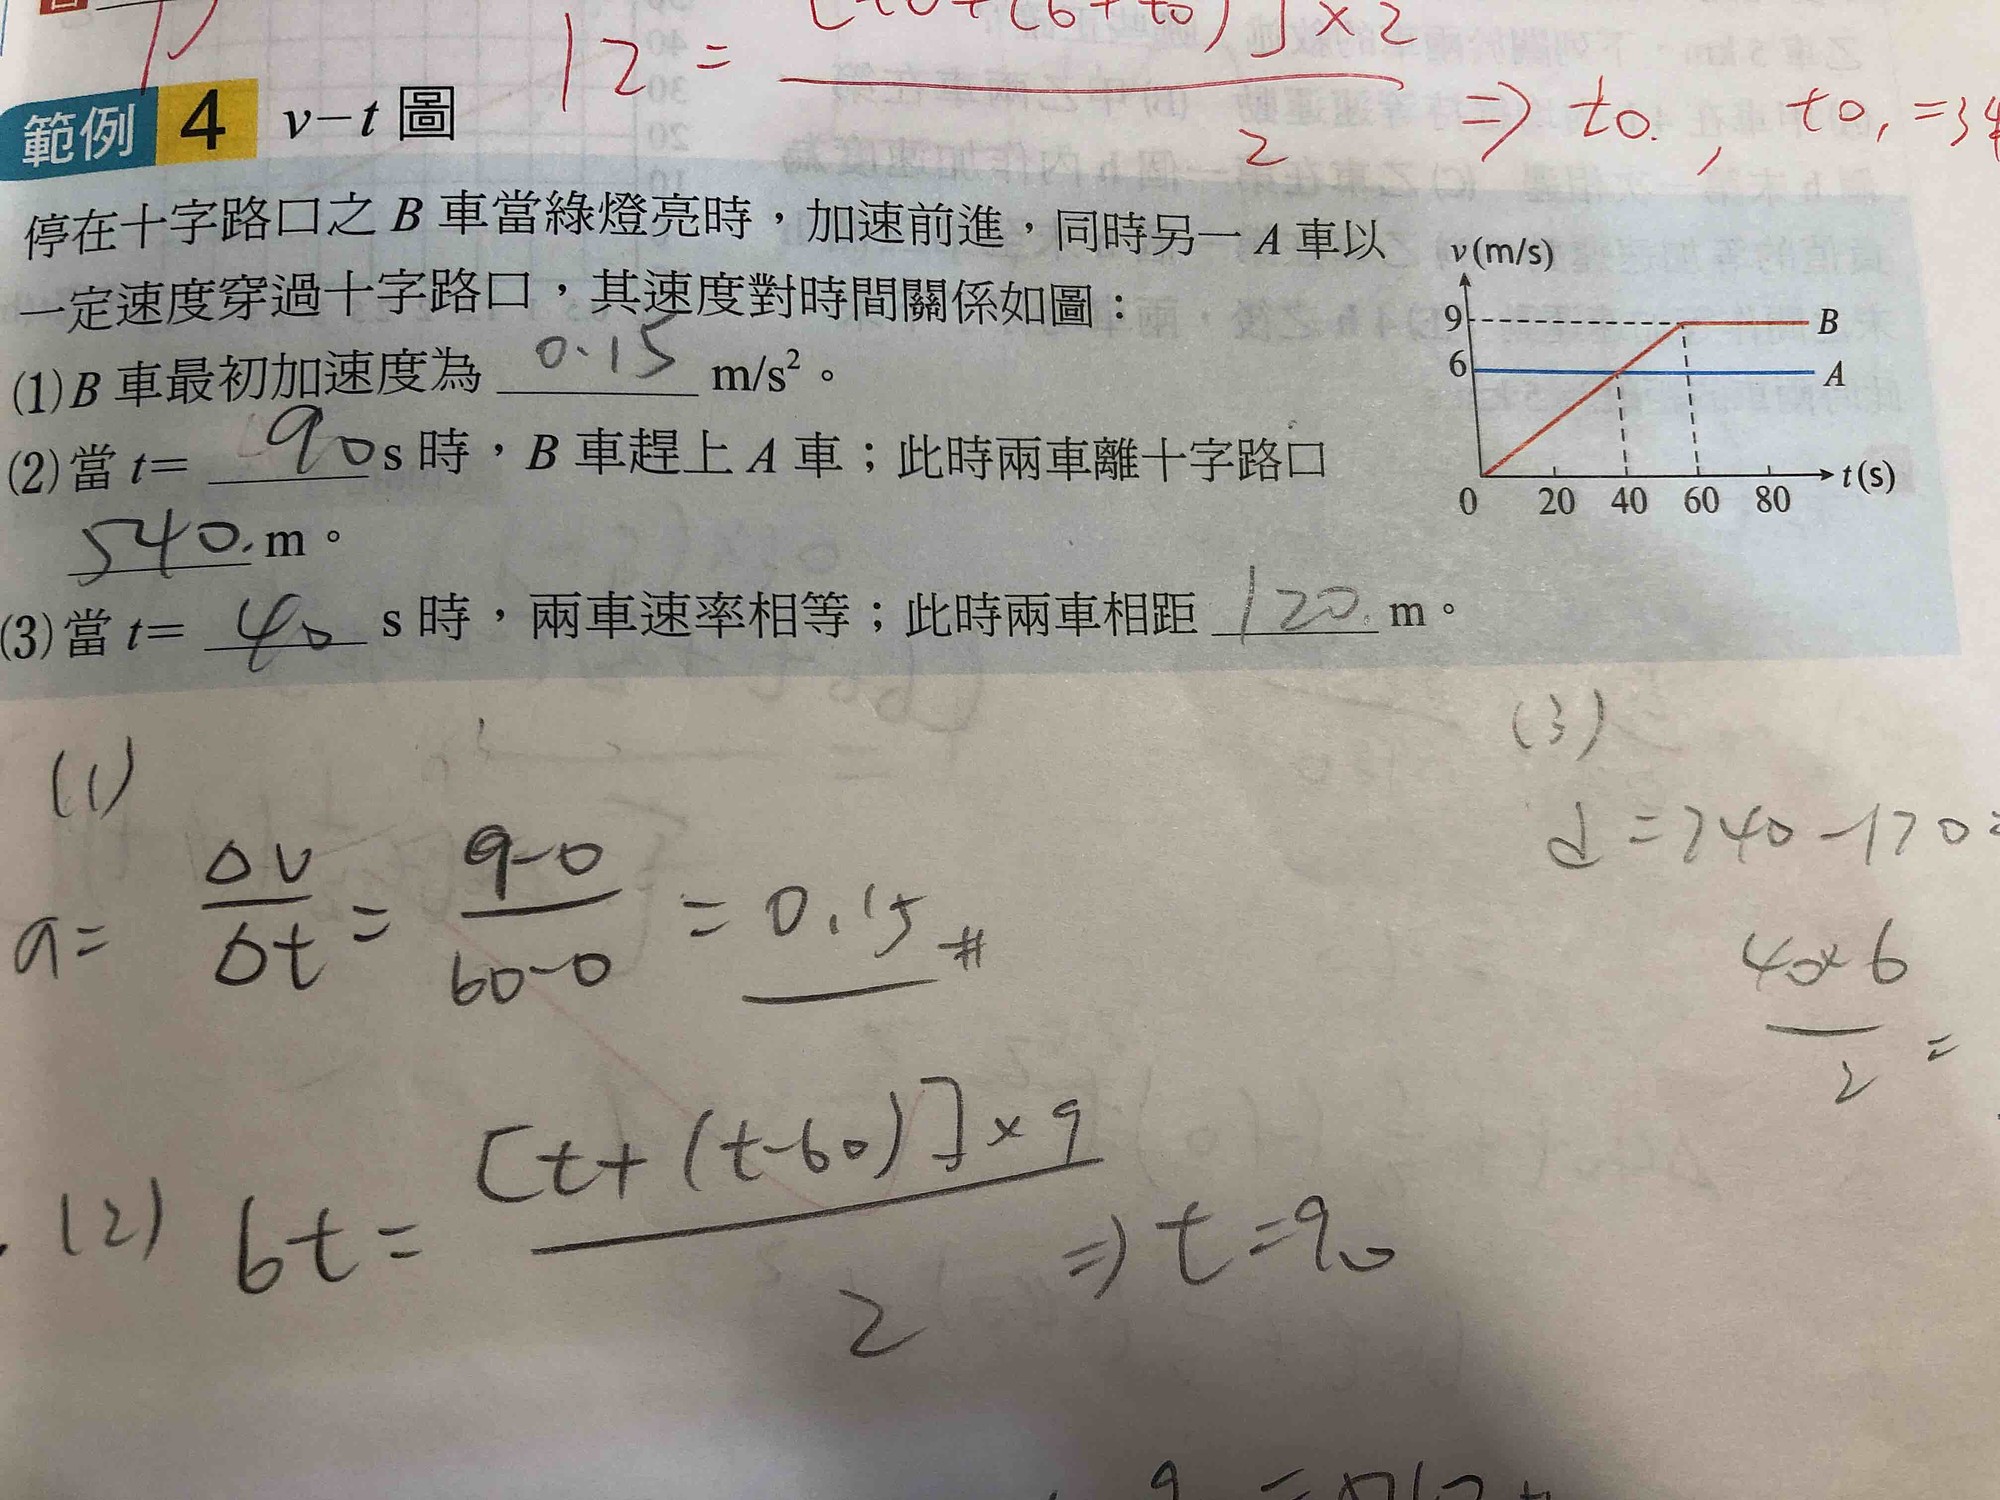 12 = [t0+(6+t0)]×2
2
⇒ t0. , t0, =34
範例 4 v−t 圖
停在十字路口之 B 車當綠燈亮時，加速前進，同時另一 A 車以
一定速度穿過十字路口，其速度對時間關係如圖：
(1) B 車最初加速度為 0.15 m/s²。
(2) 當 t= 90 s 時，B 車趕上 A 車；此時兩車離十字路口
540. m。
(3) 當 t= 40 s 時，兩車速率相等；此時兩車相距 120. m。
v(m/s)
9
B
6
A
0 20 40 60 80 t(s)
(1)
a= Δv/Δt = 9-0/60-0 = 0.15 #
(2) 6t= [t+(t-60)]×9/2 ⇒ t=90
(3)
d =240-120=
40×6/2 =